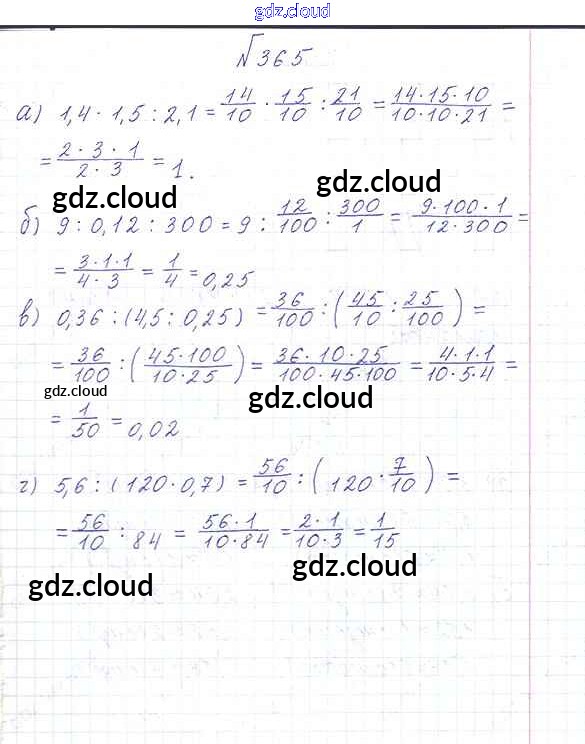 gdz.cloud
№365
а) 1,4 · 1,5 : 2,1 = 14/10 · 15/10 : 21/10 = 14·15·10/10·10·21 =
= 2·3·1/2·3 = 1.
gdz.cloud
gdz.cloud
б) 9 : 0,12 : 300 = 9 : 12/100 : 300/1 = 9·100·1/12·300 =
= 3·1·1/4·3 = 1/4 = 0,25
в) 0,36 : (4,5 : 0,25) = 36/100 : (45/10 : 25/100) =
= 36/100 : (45·100/10·25) = 36·10·25/100·45·100 = 4·1·1/10·5·4 =
gdz.cloud
gdz.cloud
= 1/50 = 0,02
г) 5,6 : (120·0,7) = 56/10 : (120 · 7/10) =
= 56/10 : 84 = 56·1/10·84 = 2·1/10·3 = 1/15
gdz.cloud
gdz.cloud